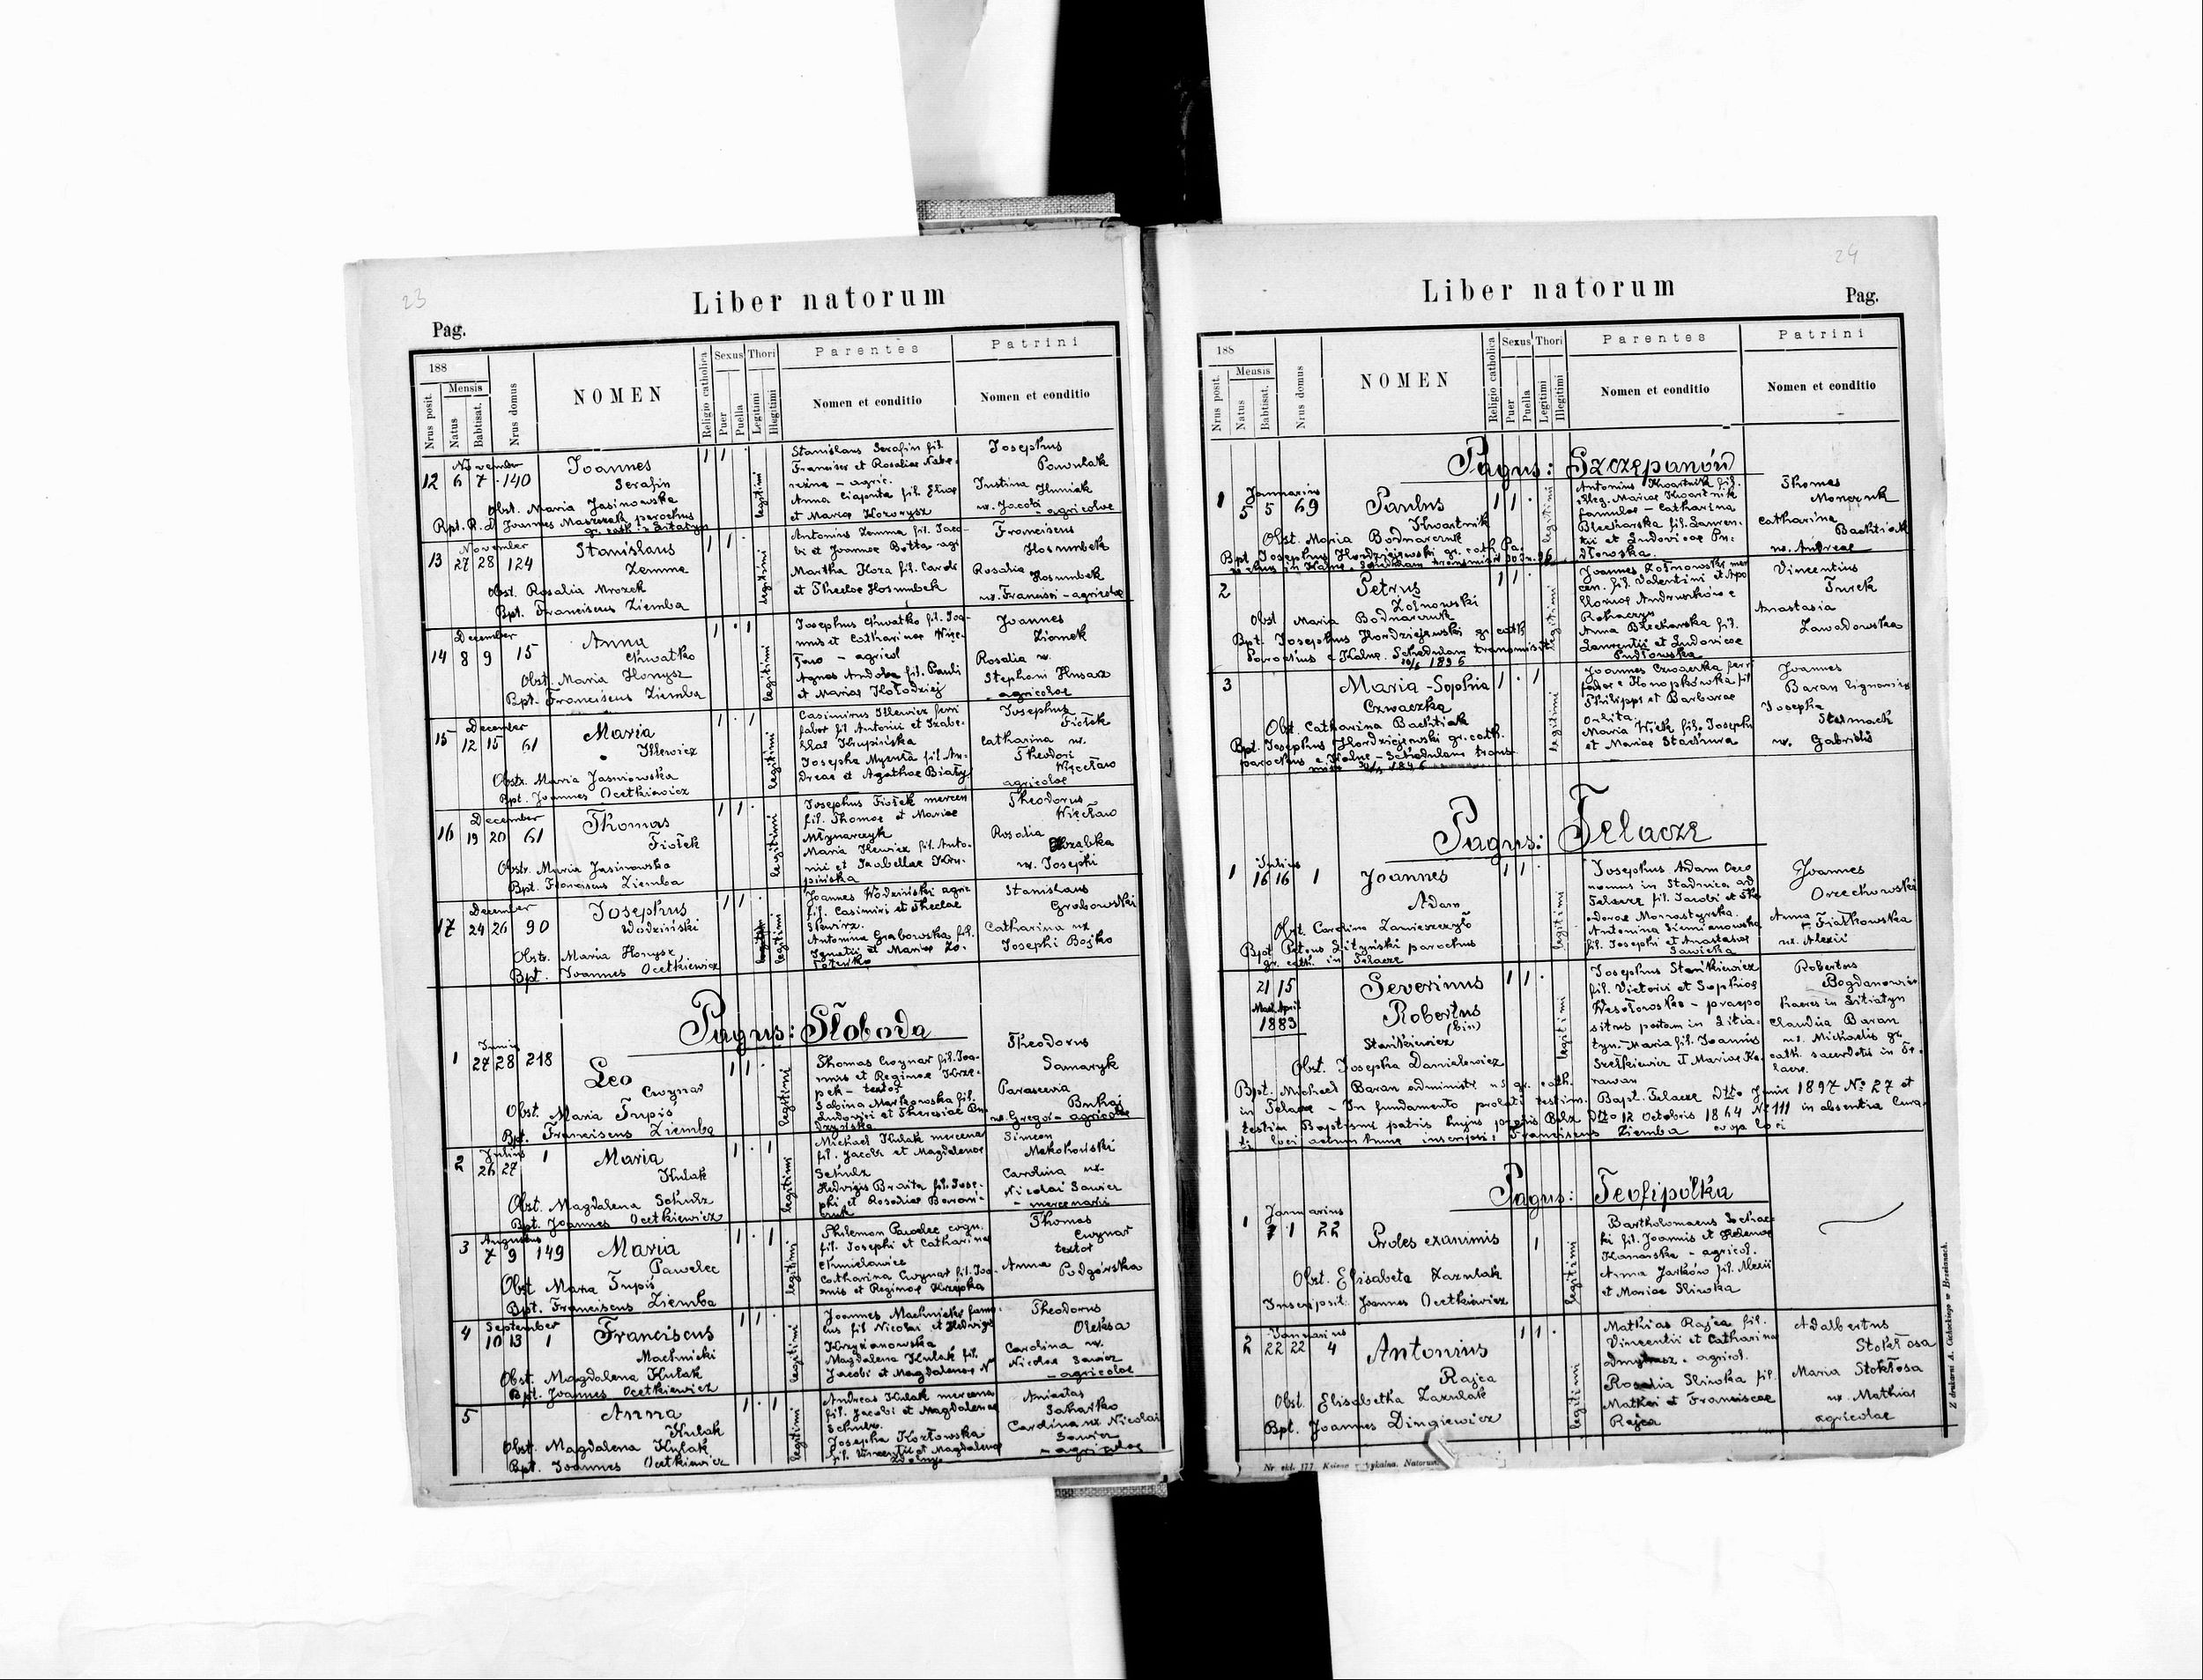 23
Liber natorum
Pag.
188
Mensis
Nrus posit.
Natus
Babtisat.
Nrus domus
NOMEN
Religio catholica
Sexus
Puer
Puella
Thori
Legitimi
Illegitimi
Parentes
Nomen et conditio
Patrini
Nomen et conditio
12 November 6 7 140
Joannes
Serafin
1 1
legitimi
Obst. Maria Jasinowska
Bpt. R. D. Joannes parochus
Stanislaus Serafin fil.
Francisc et Rosaliae
agric.
Anna fil.
et Mariae
Josephus
Powulak
Justina Huniak
ux. Jacobi
- agricolae
13 November 27 28 124
Stanislaus
Zemma
1 1
legitimi
Obst. Rosalia Mrozek
Bpt. Franciscus Ziemba
Antonius Zemma fil. Jaco-
bi et Joannae Botta agr
Martha Koza fil. Caroli
et Theclae Hosumbek
Franciscus
Hosumbek
Rosalia
Hosumbek
ux. Francisci - agricolae
14 December 8 9 15
Anna
Chwatko
1 1
legitimi
Obst. Maria Honysz
Bpt. Franciscus Ziemba
Josephus Chwatko fil. Joa-
nnis et Catharinae Więc-
ław - agricol
Agnes fil. Pauli
et Mariae Kołodziej
Joannes
Zionek
Rosalia ux.
Stephani Husarz
- agricolae
15 December 12 15 61
Maria
Illewicz
1 1
legitimi
Obstr. Maria Jasniowska
Bpt. Joannes Ocetkiewicz
Casimirus Illewicz ferri
faber fil Antonii et Izabe-
llae Krupińska
Josepha fil. An-
dreae et Agathae Biały
Josephus
Fiołek
Catharina ux.
Theodori
Więcław
agricolae
16 December 19 20 61
Thomas
Fiołek
1 1
legitimi
Obstr. Maria Jasinowska
Bpt. Franciscus Ziemba
Josephus Fiołek mercen
fil. Thomae et Mariae
Młynarczyk
Maria Ilewicz fil. Anto-
nii et Isabellae Kru-
pińska
Theodorus
Więcław
Rosalia
ux. Josephi
17 December 24 26 90
Josephus
Wodziński
1 1
legitimi
Obstr. Maria Honysz
Bpt. Joannes Ocetkiewicz
Joannes Wodziński agric
fil. Casimiri et Theclae
Skwirz.
Antonina Grabowska fil.
Ignatii et Mariae
Stanislaus
Grabowski
Catharina ux
Josephi Bojko
Pagus: Słoboda
1 Junius 27 28 218
Leo
Cwynar
1 1
legitimi
Obst. Maria Trupis
Bpt. Franciscus Ziemba
Thomas Cwynar fil. Joa-
nnis et Reginae Krze-
pek - textor
Sabina Markowska fil.
Ludovici et Theresiae
Theodorus
Samaryk
Parascevia
Buhaj
ux. Gregor - agricolae
2 Julius 26 27 1
Maria
Kulak
1 1
legitimi
Obst. Magdalena Schulz
Bpt. Joannes Ocetkiewicz
Michael Kulak mercena
fil. Jacobi et Magdalenae
Schulz
Hedvigis Braita fil. Jose-
phi et Rosaliae
Simeon
Mokohoński
Carolina ux.
Nicolai Sawicz
- mercenarii
3 Augustus 7 9 149
Maria
Pawelec
1 1
legitimi
Obst Maria Trupis
Bpt. Franciscus Ziemba
Philemon Pawelec
fil. Josephi et Catharina
Chmielowiec
Catharina Cwynar fil. Joa-
nnis et Reginae Krzepka
Thomas
Cwynar
textor
Anna Podgórska
4 September 10 13 1
Franciscus
Machnicki
1 1
legitimi
Obst. Magdalena Kulak
Bpt. Joannes Ocetkiewicz
Joannes Machnicki famu-
lus fil Nicolai et Hedvigis
Krzyżanowska
Magdalena Kulak fil.
Jacobi et Magdalenae
Theodorus
Oleksa
Carolina ux.
Nicolae Sawicz
- agricolae
5
Anna
Kulak
1 1
legitimi
Obst. Magdalena Kulak
Bpt. Joannes Ocetkiewicz
Andreas Kulak mercena
fil. Jacobi et Magdalenae
Schulz.
Josepha Kozłowska
fil. Vincentii et Magdalenae
Anicetas
Saharko
Carolina ux Nicolai
Sawicz
- agricolae
24
Liber natorum
Pag.
188
Mensis
Nrus posit.
Natus
Babtisat.
Nrus domus
NOMEN
Religio catholica
Sexus
Puer
Puella
Thori
Legitimi
Illegitimi
Parentes
Nomen et conditio
Patrini
Nomen et conditio
Pagus: Szczepanów
1 Januarius 5 5 69
Paulus
Kwartnik
1 1
legitimi
Obst. Maria Bodnarczuk
Bpt. Josephus Hordziejewski gr. cath. Pa-
Antonius Kwartnik fil.
illeg. Mariae Kwartnik
famulae - Catharina
Blecharska fil. Lauren-
tii et Ludovicae Pu-
dłowska.
Thomas
Monczuk
Catharina
Bachtiak
ux. Andreae
2
Petrus
Żołnowski
1 1
legitimi
Obst Maria Bodnarczuk
Bpt. Josephus Hordziejewski gr. cath
Parochus e Kalne. Schedulam transmisit
10/6 1896
Joannes Żołnowski mer
cen. fil. Valentini et Apo
lloniae Andruszków e
Rohaczyn
Anna Blecharska fil.
Laurentii et Ludovicae
Pudłowska
Vincentius
Turek
Anastasia
Zawadowska
3
Maria-Sophia
Czwaczka
1 1
legitimi
Obst. Catharina Bachtiak
Bpt. Josephus Hordziejewski gr. cath.
parochus e Kalne - Schedulam trans-
Joannes Czwaczka ferri
faber e Konopkówka fil
Philippi et Barbarae
Orlita.
Maria Wilk fil. Josephi
et Mariae Stachura
Joannes
Baran lignarius
Josepha
Stelmach
ux. Gabrielis
Pagus: Telacze
1 Julius 16 16 1
Joannes
Adam
1 1
legitimi
Obst. Carolina
Bpt. Petrus Lityński parochus
gr. cath. in Telacze
Josephus Adam Oeco
nomus in Stadnica ad
Telacze fil. Jacobi et The
odorae Monastyrska.
Antonina Siemianowska
fil. Josephi et Anastasiae
Sawicka
Joannes
Orzechowski
Anna Fiałkowska
ux. Alexii
21 15
Mart. April
1883
Severinus
Robertus
(bin)
Stańkiewicz
1 1
legitimi
Obst. Josepha Danialowicz
Josephus Stańkiewicz
fil. Victori et Sophiae
Wesołowska - praepo
situs postam in Litia-
tyn. Maria fil. Joannis
Szetkiewicz et Mariae Ka-
rawan
Robertus
Bogdanowicz
haeres in Litiatyn
Claudia Baran
ux. Michaelis gr.
cath. sacerdotis in Te-
lacze.
Bpt. Michael Baran administr. gr. cath.
in Telacze - In fundamento prolati testim. Bapt. Telacze Dtto Junii 1897 No 27 et
testim Baptismi patris hujus prolis Belz Dtto 12 Octobris 1864 No 111 in absentia Cura-
ti loci actum hunc inscripsi: Franciscus Ziemba coop loci
Pagus: Teofipólka
1 Januarius 1 1 22
Proles exanimis
1
legitimi
Obst. Elisabeta Zazulak
Inscripsit. Joannes Ocetkiewicz
Bartholomaeus Sochac-
ki fil. Joannis et Helenae
Kanarska - agricol.
Anna Jarków fil. Alexii
et Mariae Śliwka
2 Januarius 22 22 4
Antonius
Rajca
1 1
legitimi
Obst. Elisabetha Zazulak
Bpt. Joannes Dingiewicz
Mathias Rajca fil.
Vincentii et Catharina
- agricol.
Rosalia Śliwka fil.
Mathei et Franciscae
Rajca
Adalbertus
Stokłosa
Maria Stokłosa
ux. Mathiae
agricolae
Z drukarni A. Cichockiego w Brzeżanach.